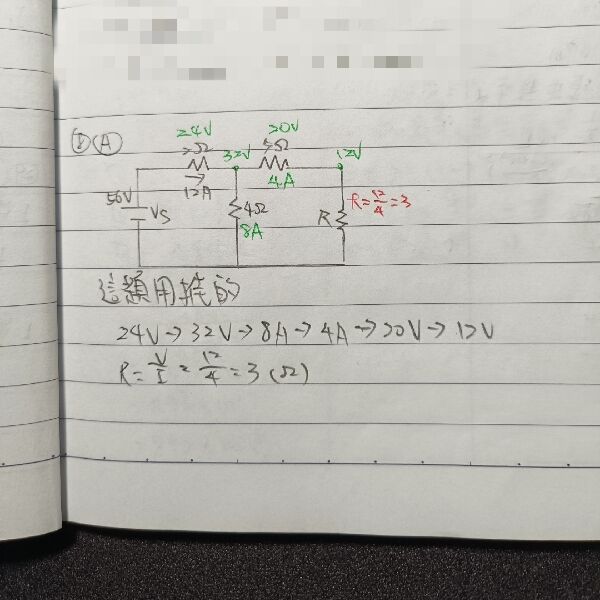 ① (A)
24V 20V
2Ω 32V 5Ω 12V
56V 12A 4A
Vs 4Ω R R=12/4=3
8A
這題用推的
24V→32V→8A→4A→20V→12V
R=V/I=12/4=3(Ω)